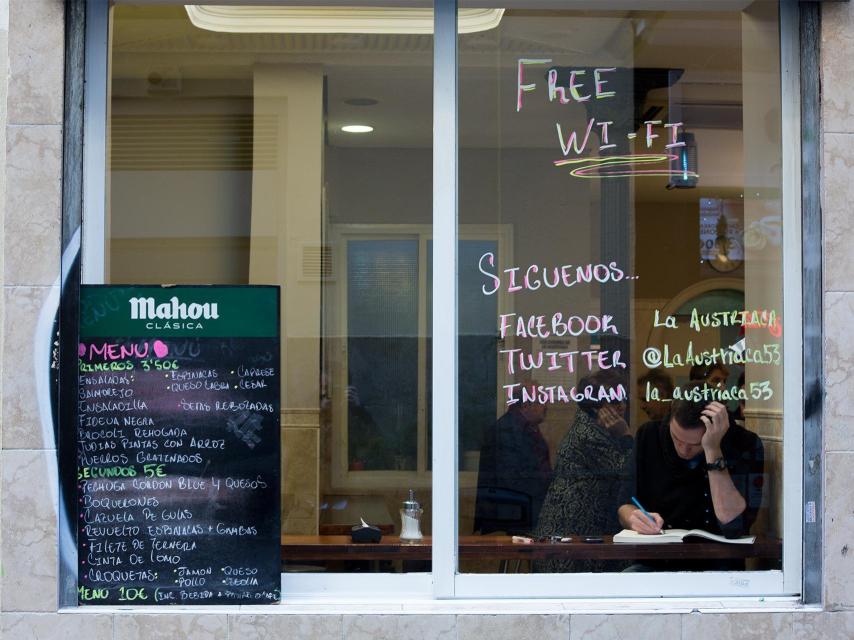 FREE
WI-FI
SIGUENOS...
FACEBOOK La AUSTRIACA
TWITTER @LaAustriaca53
INSTAGRAM la_austriaca53
Mahou
CLÁSICA
MENU
PRIMEROS 3'50€
ENSALADAS: • ESPINACAS • CAPRESE
• QUESO CABRA • CESAR
SALMOREJO
ENSALADILLA • SETAS REBOZADAS
FIDEUA NEGRA
BROCOLI REHOGADA
JUDIAS PINTAS CON ARROZ
PUERROS GRATINADOS
SEGUNDOS 5€
PECHUGA CORDON BLUE 4 QUESOS
• BOQUERONES
• CAZUELA DE GULAS
• REVUELTO ESPINACAS + GAMBAS
• FILETE DE TERNERA
• CINTA DE LOMO
• CROQUETAS: • JAMON • QUESO
• POLLO
MENU 10€ (INC. BEBIDA